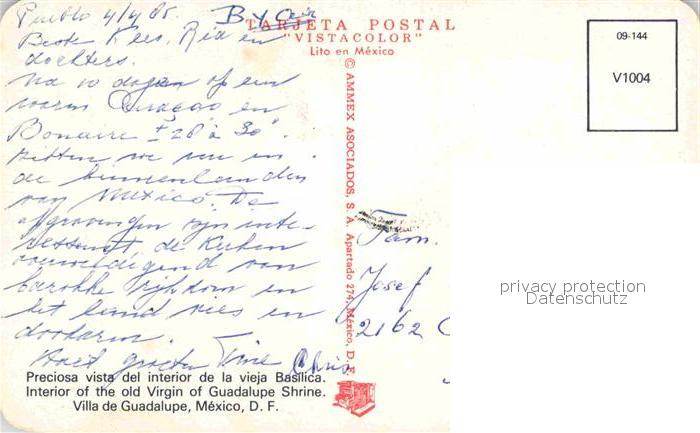 Puebla 4/4 85. By air
TARJETA POSTAL
"VISTACOLOR"
Lito en México
09-144
V1004
Beste Kees, Ria en
dochters.
Na 10 dagen op een
warm Curaçao en
Bonaire ± 28 à 30°.
zitten we nu in
de binnenlanden
van Mexico. De
afgravingen zijn inte-
ressant, de Kerken
overweldigend van
barokke rijkdom en
het land vies en
doodarm.
Hart. groeten Tine Chris
© AMMEX ASOCIADOS, S. A. Apartado 274, México, D. F.
Fam.
Josef
2162 C
privacy protection
Datenschutz
Preciosa vista del interior de la vieja Basílica.
Interior of the old Virgin of Guadalupe Shrine.
Villa de Guadalupe, México, D. F.